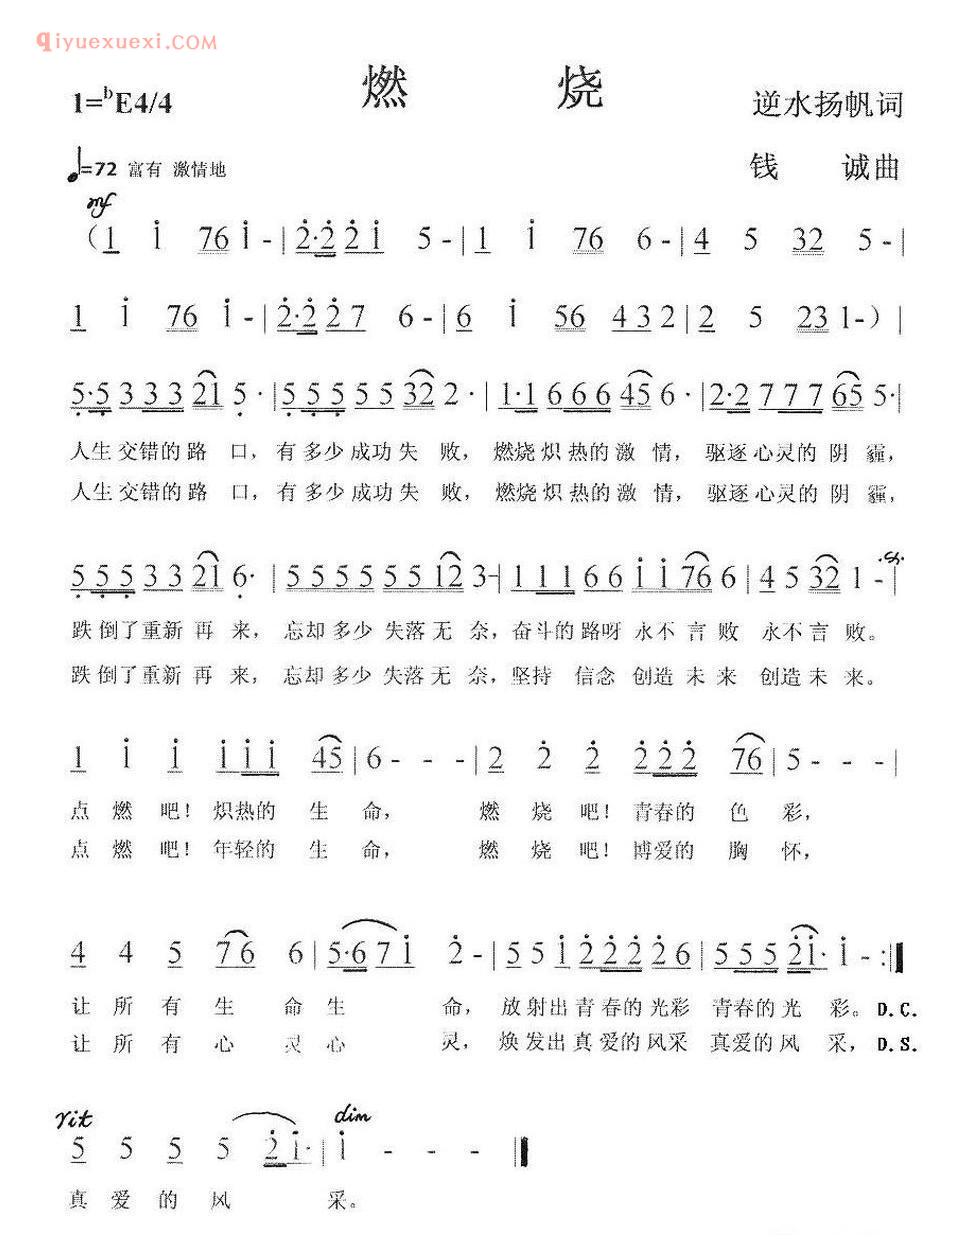 qiyuexuexi.COM
燃 烧
1=bE4/4 逆水扬帆词
♩=72 富有 激情地 钱 诚曲
mf
(1 i 76 i - | 2·2 2 i 5 - | 1 i 76 6 - | 4 5 32 5 - |
1 i 76 i - | 2·2 2 7 6 - | 6 i 56 4 3 2 | 2 5 23 1 - ) |
5·5 3 3 3 21 5 · | 5 5 5 5 5 32 2 · | 1·1 6 6 6 45 6 · | 2·2 7 7 7 65 5· |
人生 交错的 路 口, 有多少 成功 失 败, 燃烧 炽热的 激 情, 驱逐心灵的 阴 霾,
人生 交错的 路 口, 有多少 成功 失 败, 燃烧 炽热的 激 情, 驱逐心灵的 阴 霾,
5 5 5 3 3 21 6· | 5 5 5 5 5 5 12 3 - | 1 1 1 6 6 i i 76 6 | 4 5 32 1 - |
跌 倒了重新 再 来, 忘却 多少 失落 无 奈, 奋斗的 路呀 永不 言败 永不 言 败。
跌 倒了重新 再 来, 忘却 多少 失落 无 奈, 坚持 信念 创造 未来 创造 未 来。
1 i i i i i 45 | 6 - - - | 2 2 2 2 2 2 76 | 5 - - - |
点 燃 吧! 炽热的 生 命, 燃 烧 吧! 青春的 色 彩,
点 燃 吧! 年轻的 生 命, 燃 烧 吧! 博爱的 胸 怀,
4 4 5 76 6 | 5·6 7 i 2 - | 5 5 i 2 2 2 2 6 | 5 5 5 2i· i - :|
让 所 有 生 命 生 命, 放射出 青春的 光彩 青春的 光 彩。 D.C.
让 所 有 心 灵 心 灵, 焕发出 真爱的 风采 真爱的 风 采, D.S.
rit dim
5 5 5 5 2 i· | i - - - |
真 爱 的 风 采。